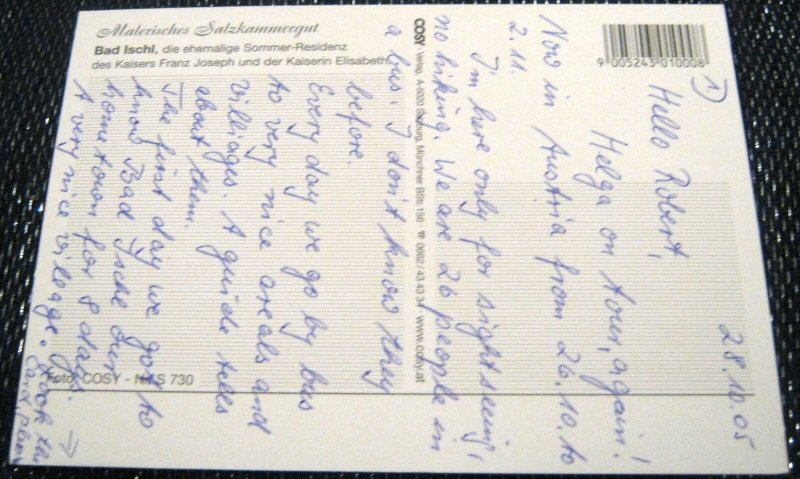 Malerisches Salzkammergut
Bad Ischl, die ehemalige Sommer-Residenz
des Kaisers Franz Joseph und der Kaiserin Elisabeth
9 005243 010008
COSY Verlag, A-5020 Salzburg, Münchner BStr. 156 ☎ 0662 / 43 43 34 www.cosy.at
Foto: COSY - N 730
1)
28.10.05
Hello Robert,
Helga on tour, again!
Now in Austria from 26.10. to
2.11.
I'm here only for sightseeing,
no hiking. We are 26 people in
a bus. I don't know they
before.
Every day we go by bus
to very nice areals and
villiages. A guide tells
about them.
The first day we got to
know Bad Ischl our
hometown for 8 days.
A very nice villiage. Look the
card, please
→